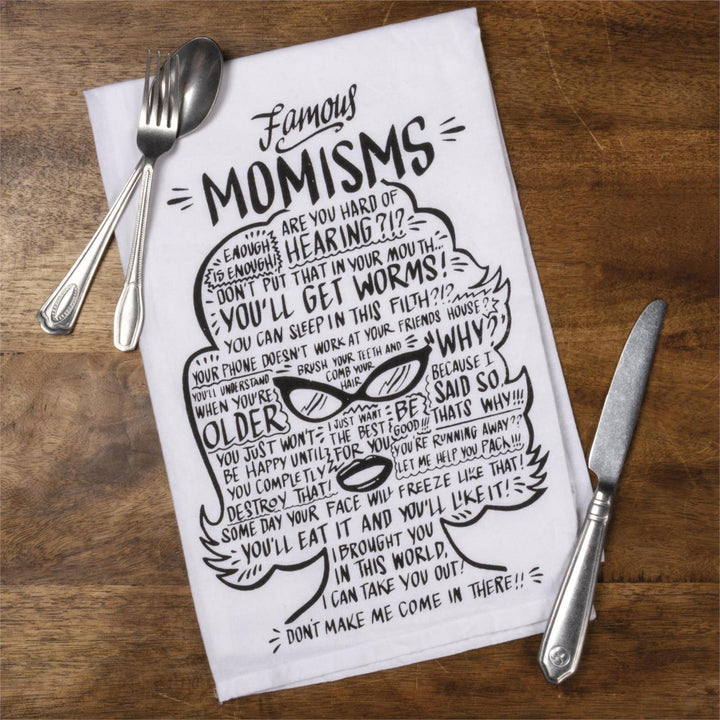 Famous
MOMISMS
ENOUGH
IS ENOUGH!
ARE YOU HARD OF
HEARING?!?
DON'T PUT THAT IN YOUR MOUTH...
YOU'LL GET WORMS!
YOU CAN SLEEP IN THIS FILTH?!?
YOUR PHONE DOESN'T WORK AT YOUR FRIENDS HOUSE?
BRUSH YOUR TEETH AND
COMB YOUR
HAIR
"WHY?"
BECAUSE I
SAID SO.
THATS WHY!!!
YOU'LL UNDERSTAND
WHEN YOU'RE
OLDER
I JUST WANT
THE BEST
FOR YOU
BE
GOOD!!!
YOU JUST WON'T
BE HAPPY UNTIL
YOU COMPLETLY
DESTROY THAT!
YOU'RE RUNNING AWAY??
LET ME HELP YOU PACK!!!
SOME DAY YOUR FACE WILL FREEZE LIKE THAT!
YOU'LL EAT IT AND YOU'LL LIKE IT!
I BROUGHT YOU
IN THIS WORLD,
I CAN TAKE YOU OUT!
DON'T MAKE ME COME IN THERE!!